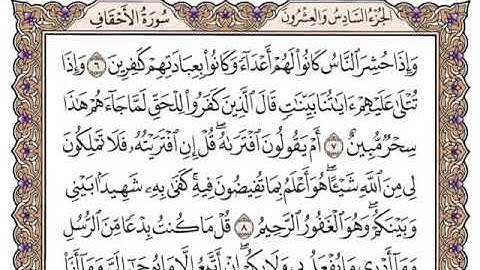 الجزء السادس والعشرون سورة الأحقاف
وَإِذَا حُشِرَ ٱلنَّاسُ كَانُوا۟ لَهُمْ أَعْدَآءً وَكَانُوا۟ بِعِبَادَتِهِمْ كَٰفِرِينَ ٦ وَإِذَا
تُتْلَىٰ عَلَيْهِمْ ءَايَٰتُنَا بَيِّنَٰتٍ قَالَ ٱلَّذِينَ كَفَرُوا۟ لِلْحَقِّ لَمَّا جَآءَهُمْ هَٰذَا
سِحْرٌ مُّبِينٌ ٧ أَمْ يَقُولُونَ ٱفْتَرَىٰهُ ۖ قُلْ إِنِ ٱفْتَرَيْتُهُۥ فَلَا تَمْلِكُونَ
لِى مِنَ ٱللَّهِ شَيْـًٔا ۖ هُوَ أَعْلَمُ بِمَا تُفِيضُونَ فِيهِ ۖ كَفَىٰ بِهِۦ شَهِيدًۢا بَيْنِى
وَبَيْنَكُمْ ۖ وَهُوَ ٱلْغَفُورُ ٱلرَّحِيمُ ٨ قُلْ مَا كُنتُ بِدْعًا مِّنَ ٱلرُّسُلِ
وَمَآ أَدْرِى مَا يُفْعَلُ بِى وَلَا بِكُمْ ۖ إِنْ أَتَّبِعُ إِلَّا مَا يُوحَىٰٓ إِلَىَّ وَمَآ أَنَا۠